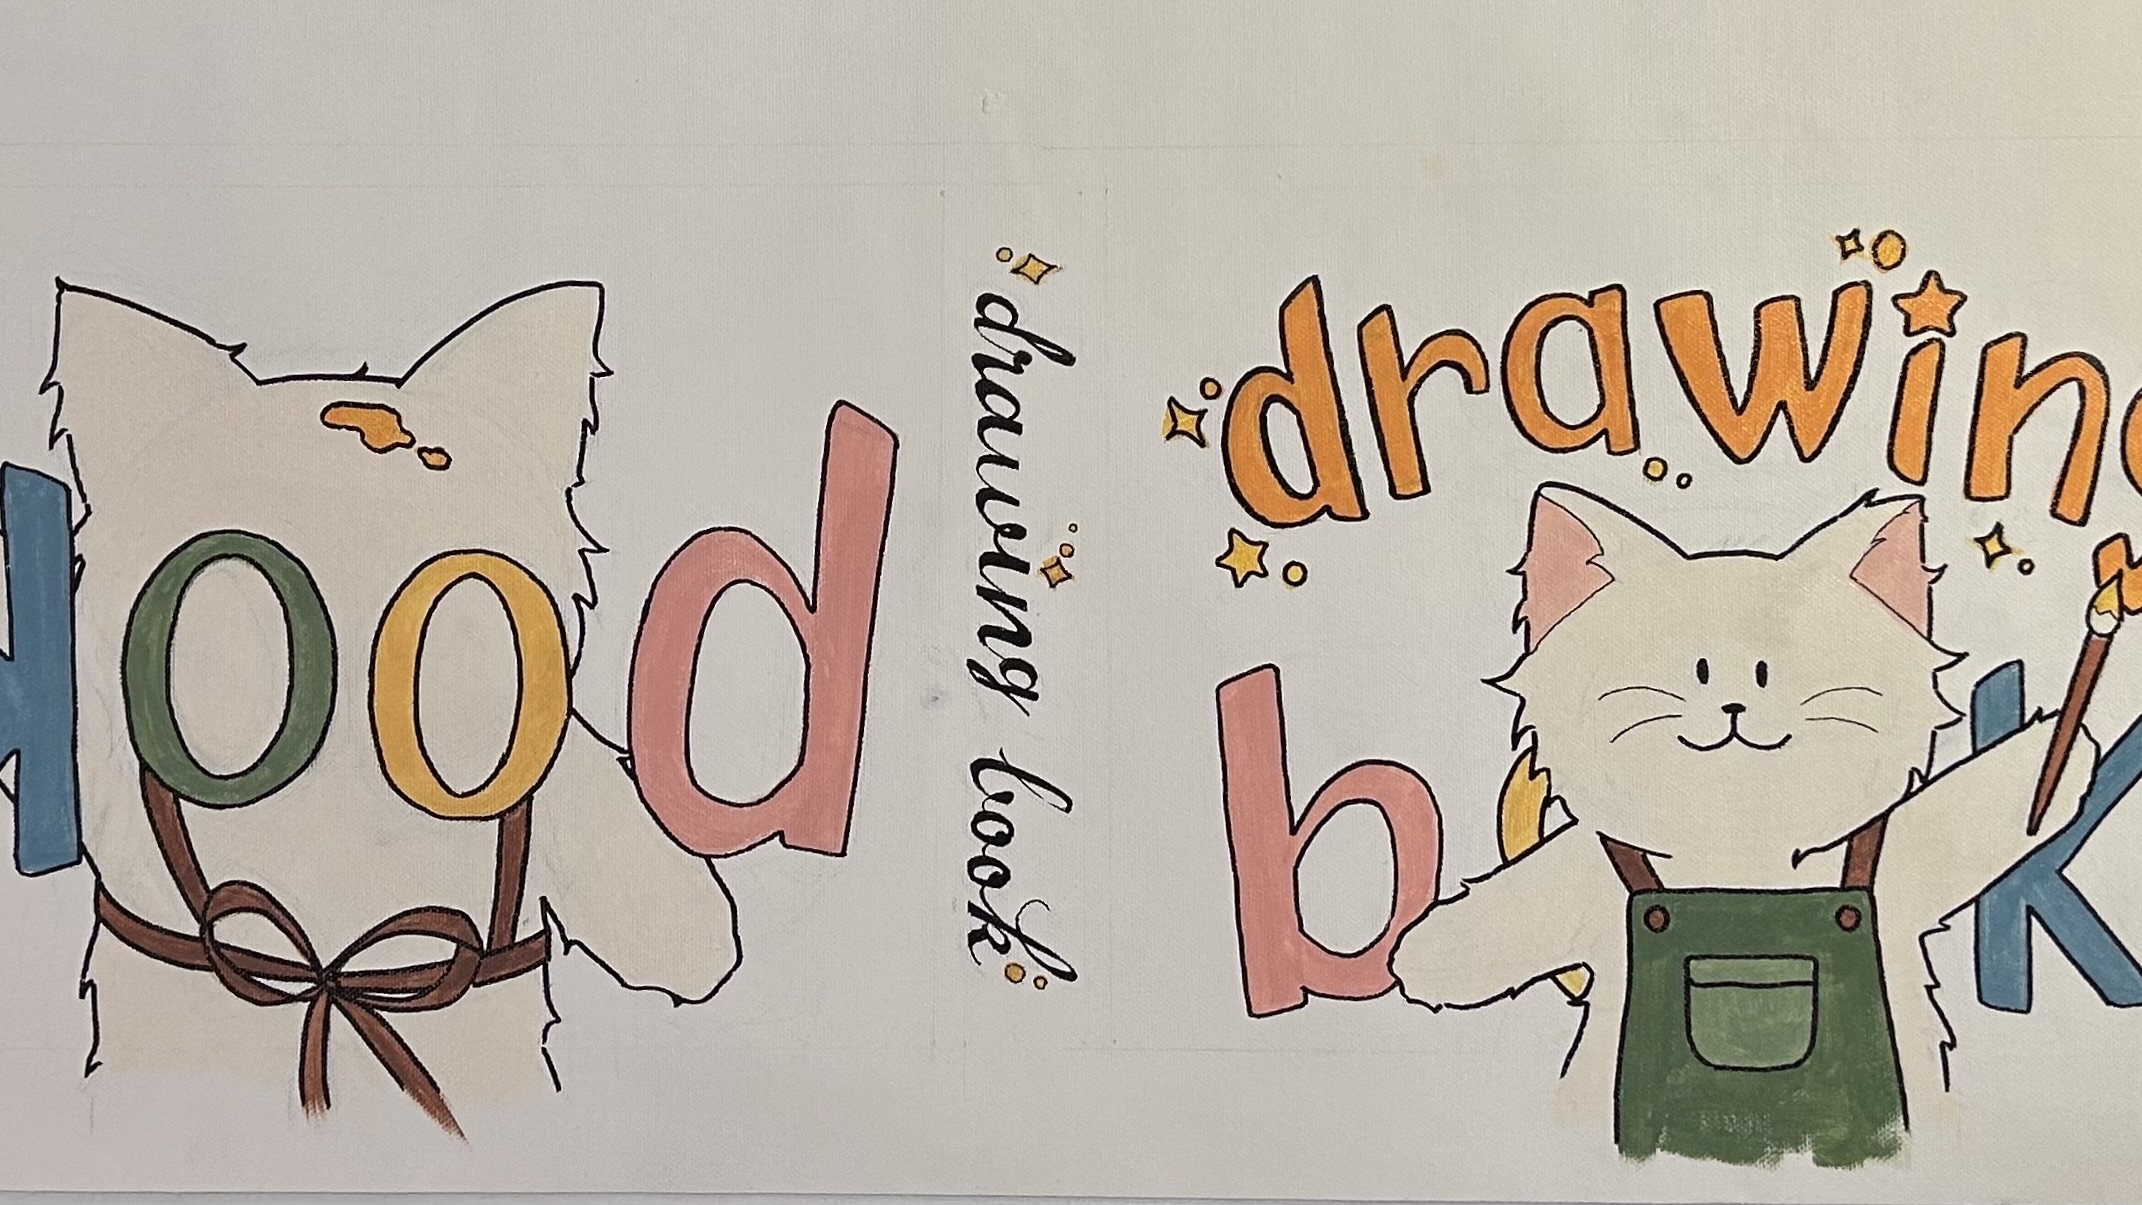 book
drawing book
drawin
b k